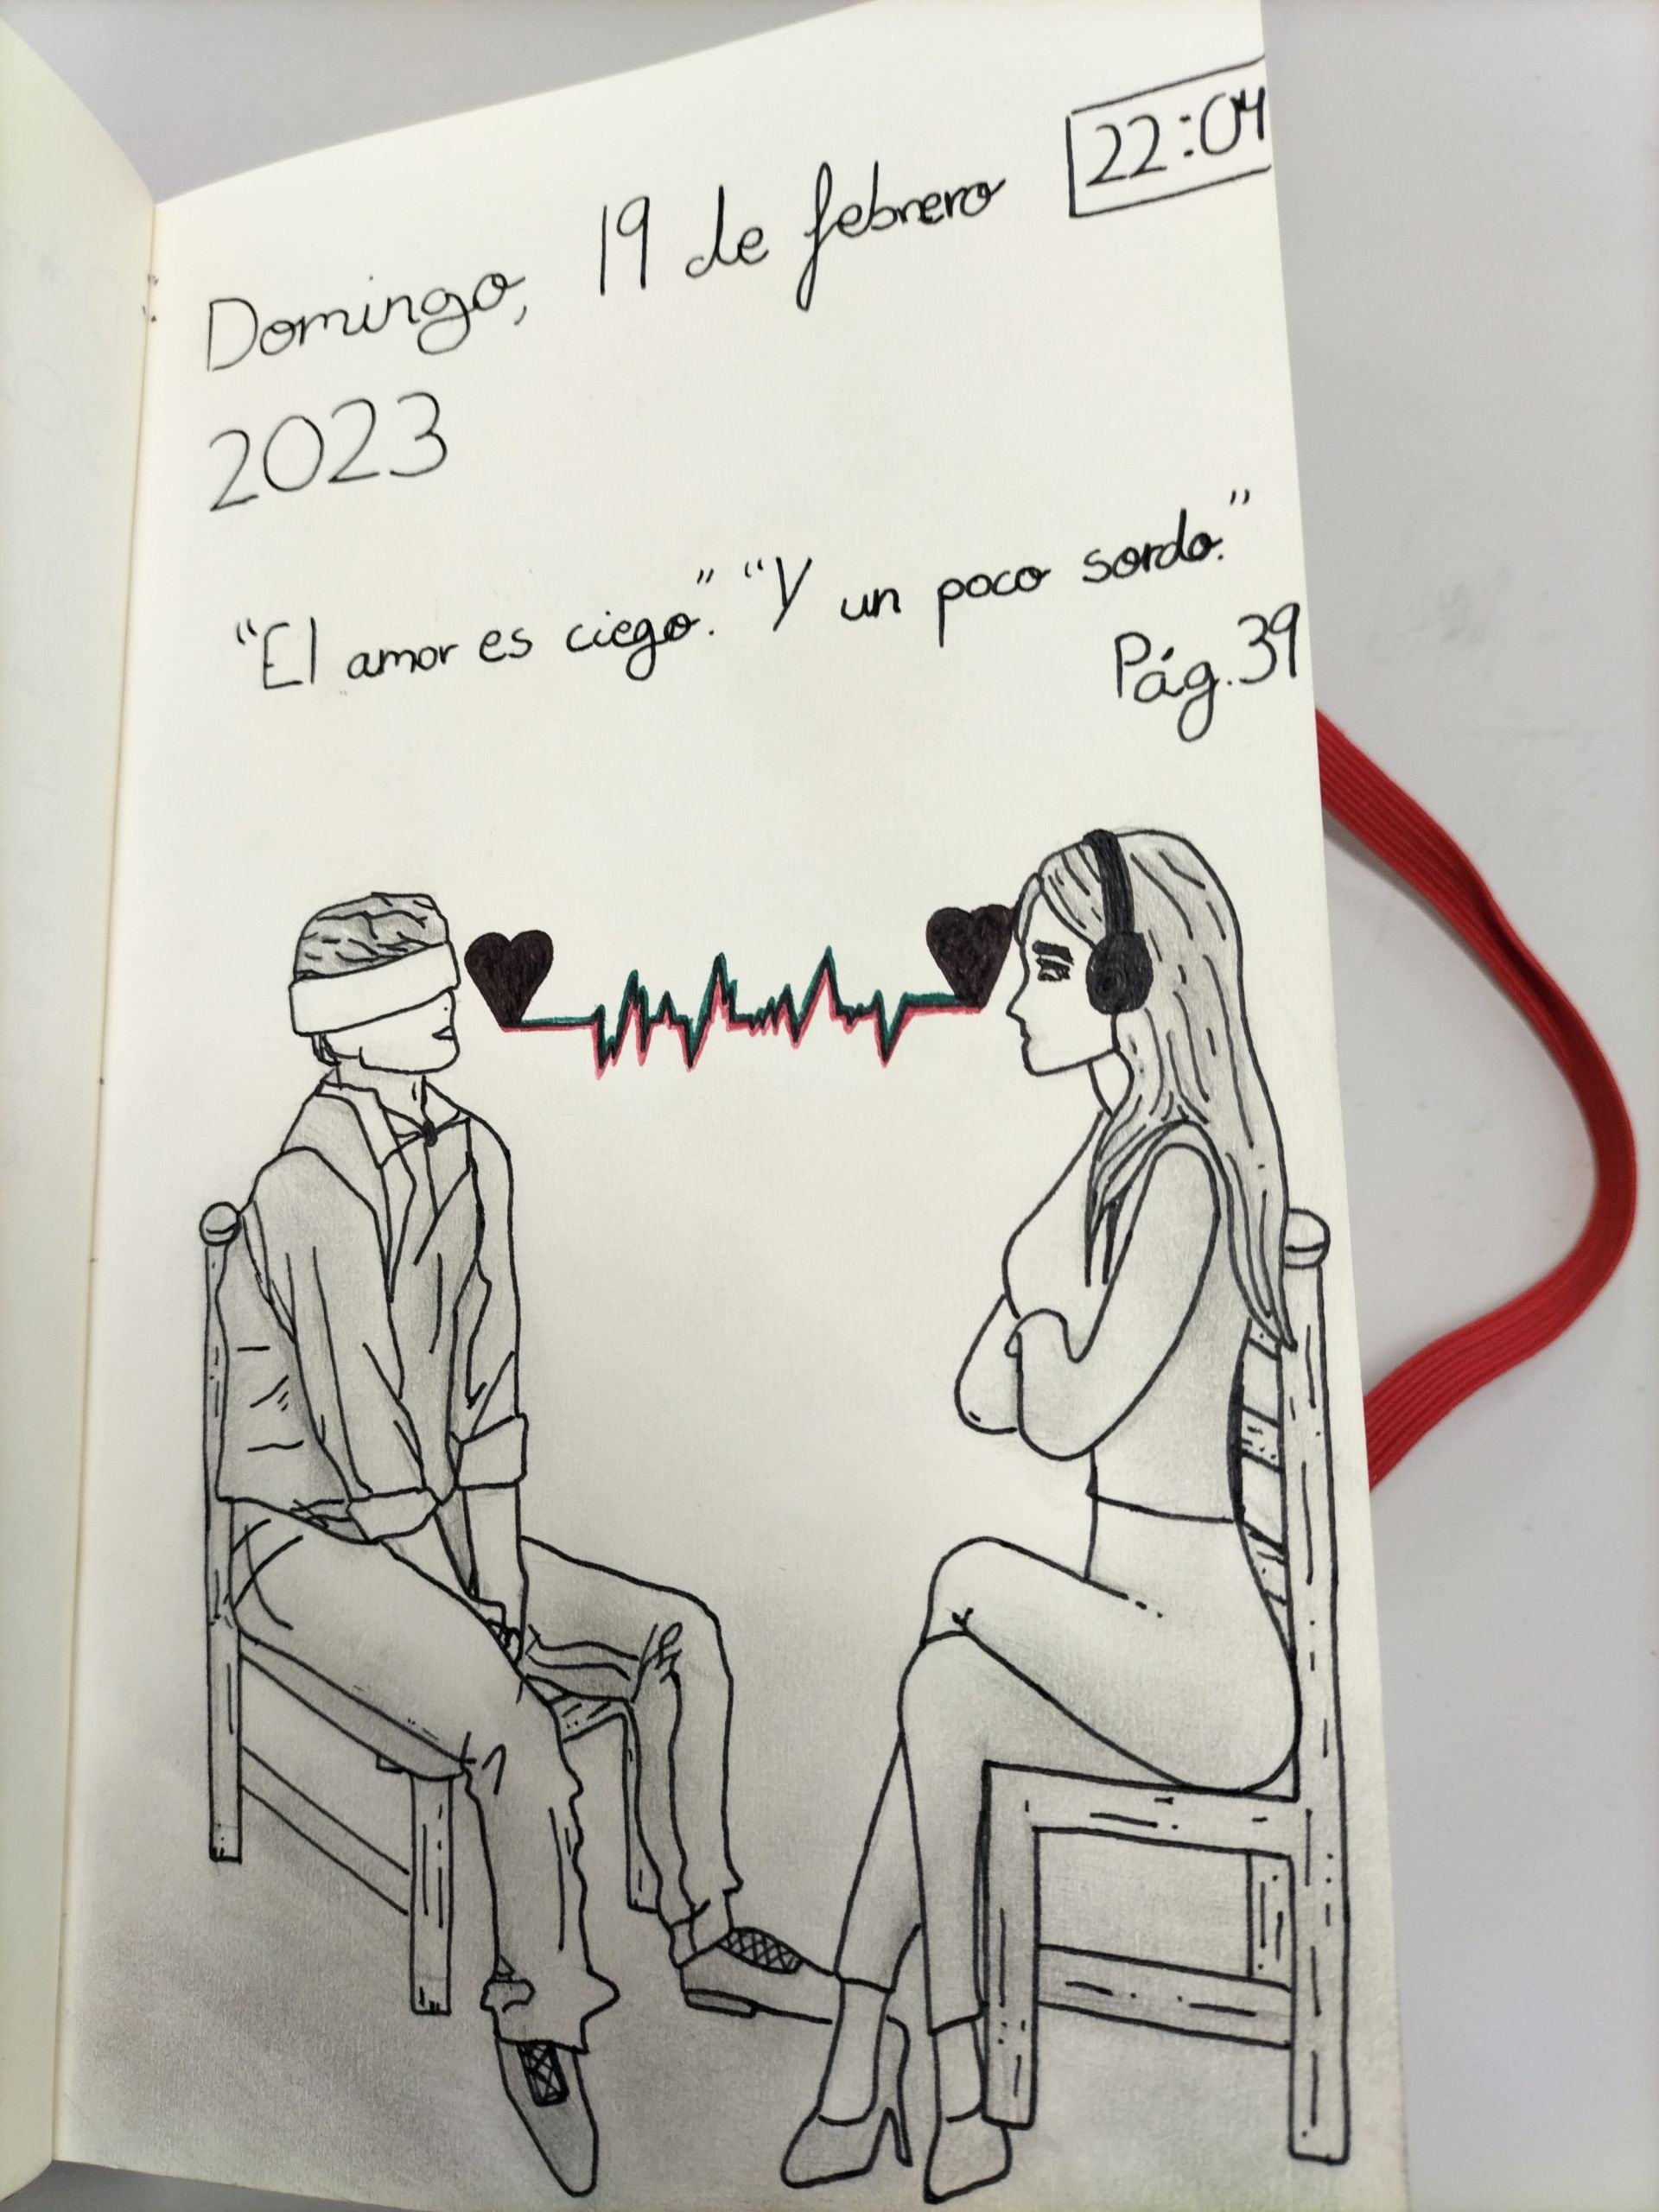 22:04
Domingo, 19 de febrero
2023
"El amor es ciego." "Y un poco sordo."
Pág. 39